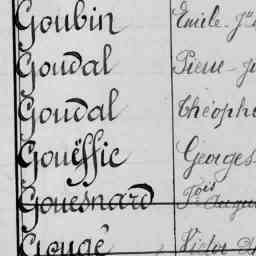 Goubin Emile
Goudal Pierre
Goudal Théoph
Gouëffic Georges
Gouesnard Fois Augu
Gougé Victor